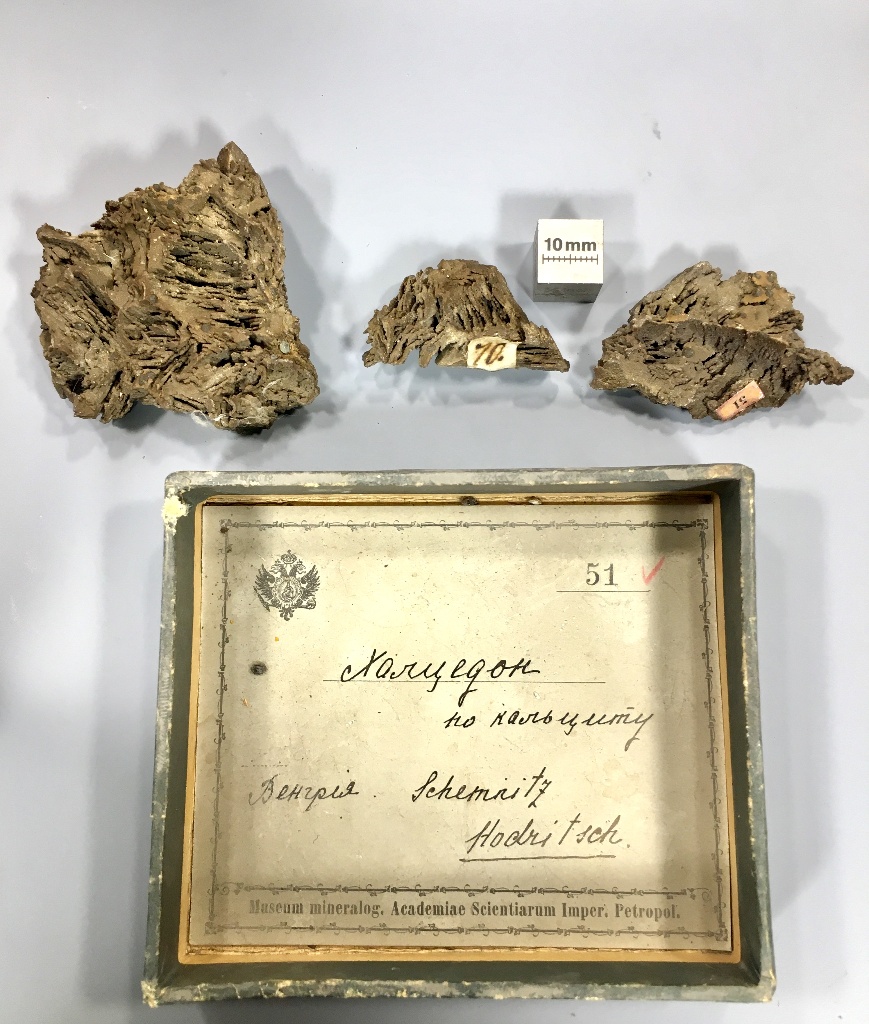 10 mm
70.
51
51
Халцедон
по кальциту
Венгрія. Schemnitz
Hodritsch.
Museum mineralog. Academiae Scientiarum Imper. Petropol.